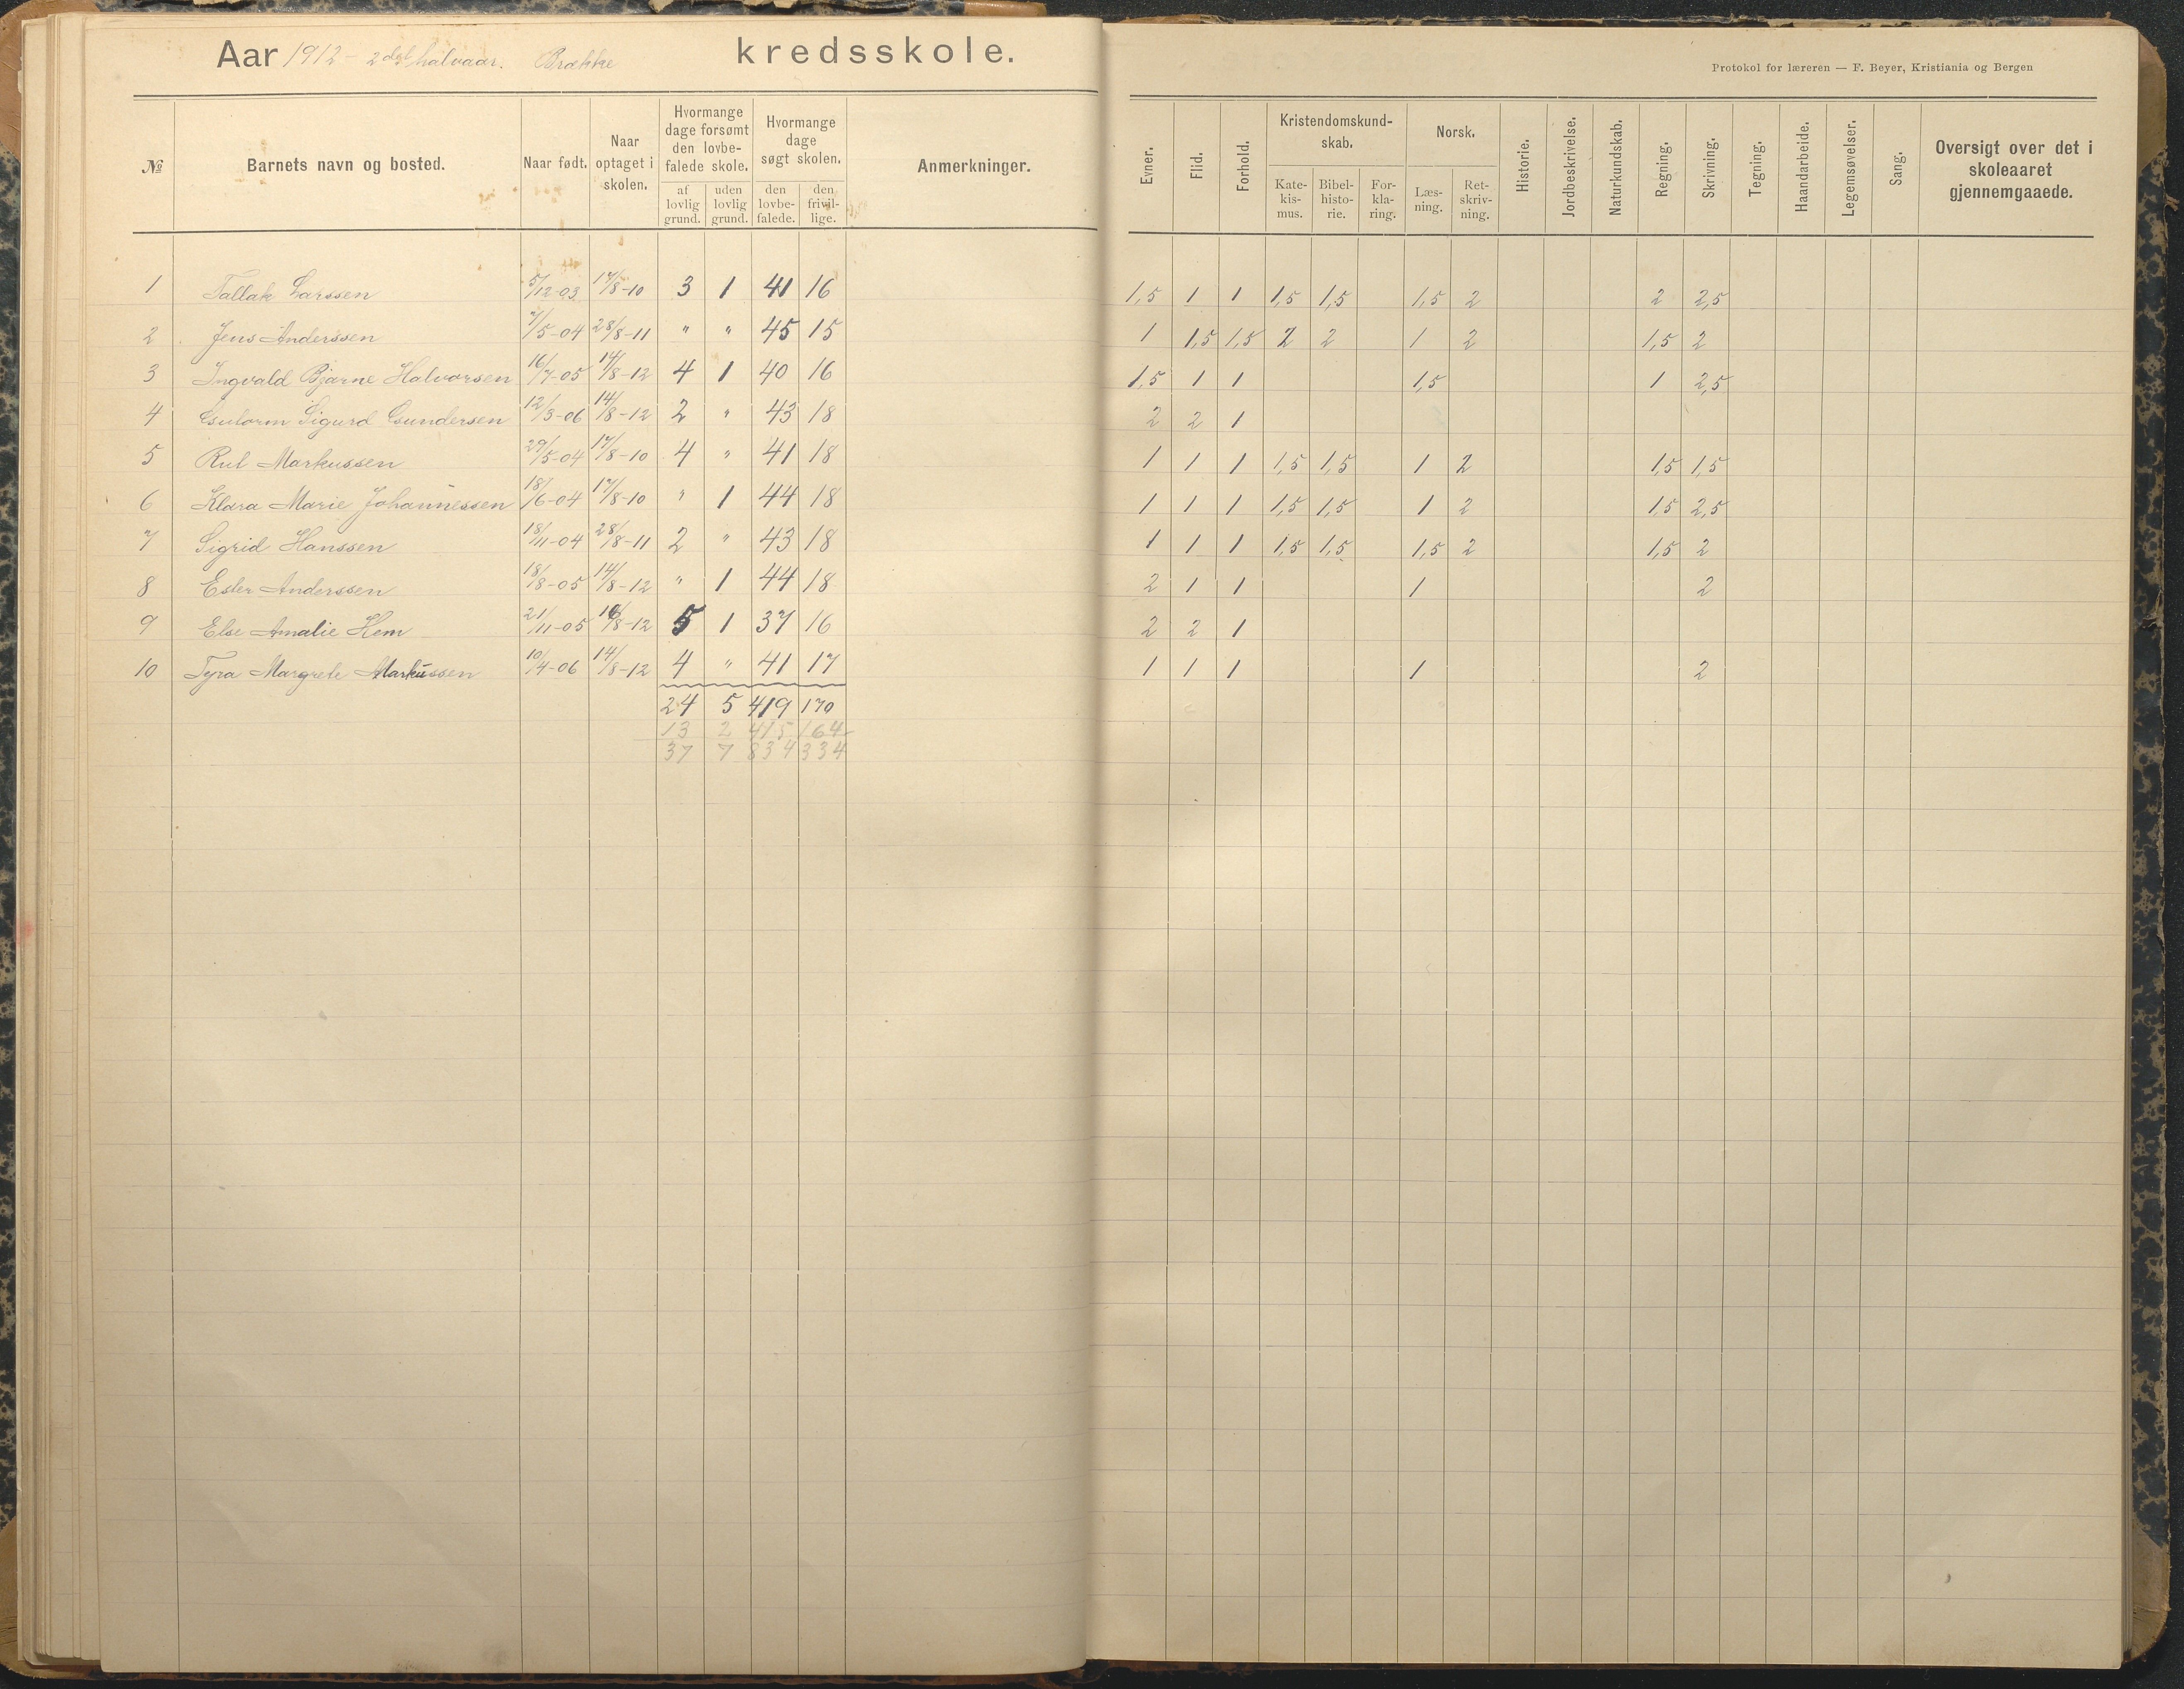 Aar 1912 - 2det halvaar. Brække kredsskole.
Protokol for læreren — F. Beyer, Kristiania og Bergen
№ Barnets navn og bosted. Naar født. Naar optaget i skolen. Hvormange dage forsømt den lovbefalede skole. af lovlig grund. uden lovlig grund. Hvormange dage søgt skolen. den lovbefalede. den frivillige. Anmerkninger. Evner. Flid. Forhold. Kristendomskundskab. Katekismus. Bibelhistorie. Forklaring. Norsk. Læsning. Retskrivning. Historie. Jordbeskrivelse. Naturkundskab. Regning. Skrivning. Tegning. Haandarbeide. Legemsøvelser. Sang. Oversigt over det i skoleaaret gjennemgaaede.
1 Tallak Larssen 5/12-03 17/8-10 3 1 41 16 1,5 1 1 1,5 1,5 1,5 2 2 2,5
2 Jens Anderssen 7/5-04 28/8-11 " " 45 15 1 1,5 1,5 2 2 1 2 1,5 2
3 Ingvald Bjarne Halvorsen 16/7-05 14/8-12 4 1 40 16 1,5 1 1 1,5 1 2,5
4 Gutorm Sigurd Gundersen 12/3-06 14/8-12 2 " 43 18 2 2 1
5 Rut Markussen 29/5-04 17/8-10 4 " 41 18 1 1 1 1,5 1,5 1 2 1,5 1,5
6 Klara Marie Johannessen 18/6-04 17/8-10 " 1 44 18 1 1 1 1,5 1,5 1 2 1,5 2,5
7 Sigrid Hanssen 18/11-04 28/8-11 2 " 43 18 1 1 1 1,5 1,5 1,5 2 1,5 2
8 Ester Anderssen 18/8-05 14/8-12 " 1 44 18 2 1 1 1 2
9 Else Amalie Hem 21/11-05 /8-12 5 1 37 16 2 2 1
10 Tyra Margrete Markussen 10/4-06 14/8-12 4 " 41 17 1 1 1 1 2
24 5 419 170
13 2 415 164
37 7 834 334